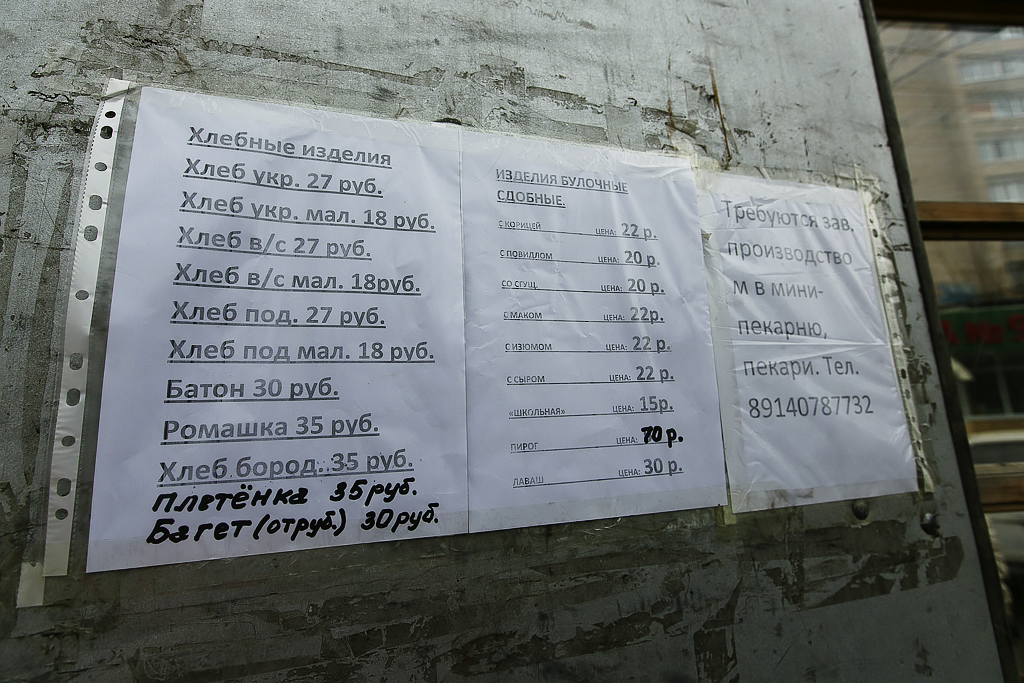 Хлебные изделия
Хлеб укр. 27 руб.
Хлеб укр. мал. 18 руб.
Хлеб в/с 27 руб.
Хлеб в/с мал. 18руб.
Хлеб под. 27 руб.
Хлеб под мал. 18 руб.
Батон 30 руб.
Ромашка 35 руб.
Хлеб бород..35 руб.
Плетёнка 35 руб.
Багет (отруб.) 30 руб.
ИЗДЕЛИЯ БУЛОЧНЫЕ
СДОБНЫЕ.
С КОРИЦЕЙ ЦЕНА: 22 р.
С ПОВИЛЛОМ ЦЕНА: 20 р.
СО СГУЩ. ЦЕНА: 20 р.
С МАКОМ ЦЕНА: 22р.
С ИЗЮМОМ ЦЕНА: 22 р.
С СЫРОМ ЦЕНА: 22 р.
«ШКОЛЬНАЯ» ЦЕНА: 15р.
ПИРОГ ЦЕНА: 70 р.
ЛАВАШ ЦЕНА: 30 р.
Требуются зав.
производство
м в мини-
пекарню,
пекари. Тел.
89140787732